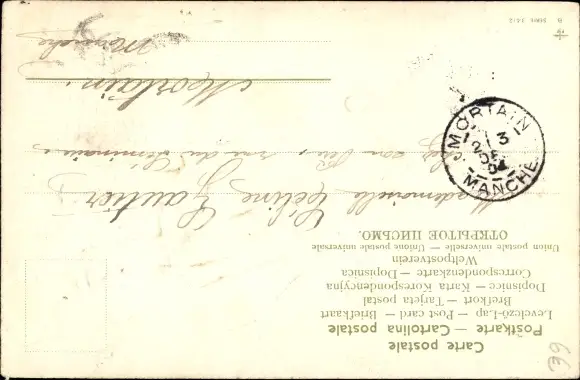 Carte postale
Postkarte — Cartolina postale
Levelező-Lap — Post card — Briefkaart
Brefkort — Tarjeta postal
Dopisnice — Karta Korespondencyjna
Correspondenzkarte — Dopisnica
Weltpostverein
Union postale universelle — Unione postale universale
ОТКРЫТОЕ ПИСЬМО.
Mademoiselle Céline Gautier
chez son Père, rue du Séminaire
Mortain.
Manche
MORTAIN
MANCHE
39